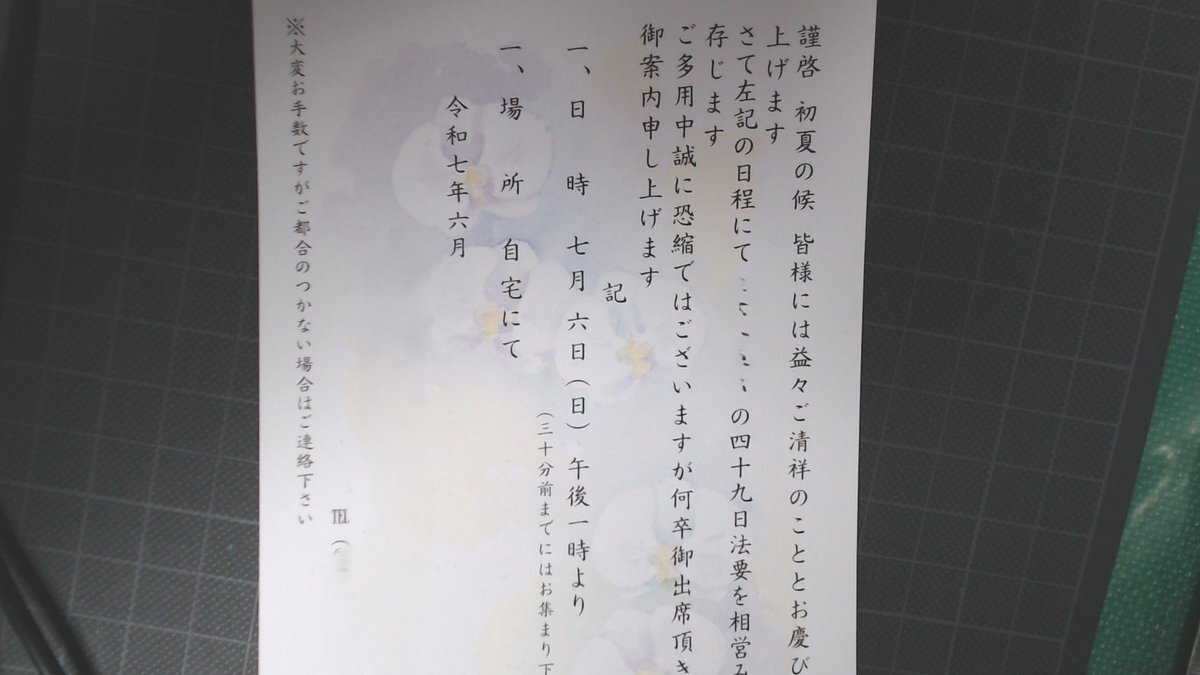 謹啓 初夏の候 皆様には益々ご清祥のこととお慶び
上げます
さて左記の日程にて の四十九日法要を相営み
存じます
ご多用中誠に恐縮ではございますが何卒御出席頂き
御案内申し上げます
記
一、日 時 七月六日(日)午後一時より
(三十分前までにはお集まり下
一、場 所 自宅にて
令和七年六月
℡(
※大変お手数ですがご都合のつかない場合はご連絡下さい